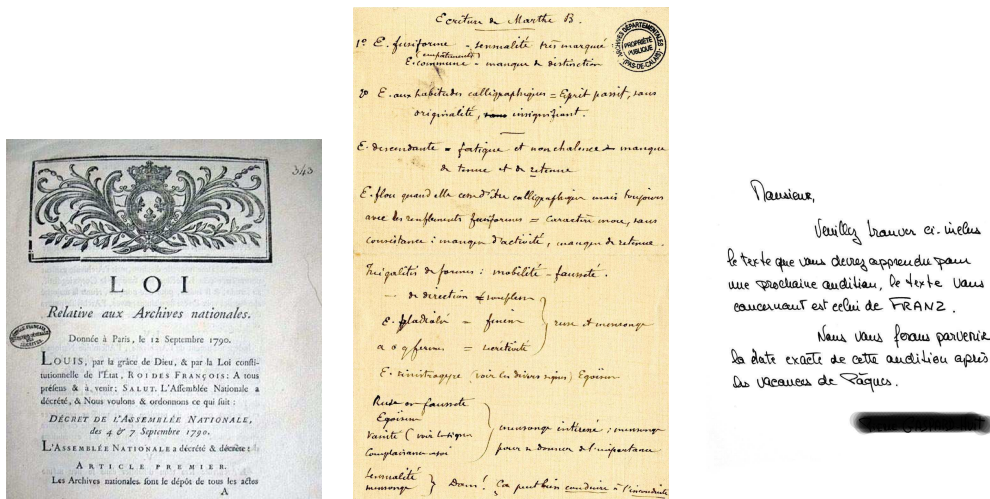 343
LOI
Relative aux Archives nationales.
Donnée à Paris, le 12 Septembre 1790.
LOUIS, par la grâce de Dieu, & par la Loi consti-
tutionnelle de l'État, ROI DES FRANÇOIS: A tous
présens & à venir; SALUT. L'Assemblée Nationale a
décrété, & Nous voulons & ordonnons ce qui suit :
DÉCRET DE L'ASSEMBLÉE NATIONALE,
des 4 & 7 Septembre 1790.
L'ASSEMBLÉE NATIONALE a décrété & décrète :
ARTICLE PREMIER.
Les Archives nationales sont le dépôt de tous les actes
A
Ecriture de Marthe B.
ARCHIVES DÉPARTEMENTALES
PROPRIÉTÉ PUBLIQUE
(PAS-DE-CALAIS)
1º E. fusiforme = sensualité très marquée
(empâtements)
E. commune = manque de distinction
2º E. aux habitudes calligraphiques = Esprit passif, sans
originalité, insignifiant.
E. descendante = fatigue et nonchalence & manque
de tenue et de retenue
E. floue quand elle d'être calligraphique mais toujours
avec les renflements fusiformes = caractère mou, sans
consistance : manque d'activité, manque de retenue.
Inégalités de formes : mobilité - fausseté.
- de direction souplesse
E. = finesse
a o g fermés = secrétivité
ruse et mensonge
E. sinistrogyre (voir les divers signes) Egoïsme
Ruse ou fausseté
Egoïsme
Vanité (voir
Complaisance
mensonge intéressé ; mensonge
pour se donner de l'importance
Sensualité
mensonge } Dans! Ca peut bien conduire à l'inconduite
Monsieur,
Veuillez trouver ci-inclus
le texte que vous devrez apprendre pour
une prochaine audition, le texte vous
concernant est celui de FRANZ.
Nous vous ferons parvenir
la date exacte de cette audition après
les vacances de Pâques.